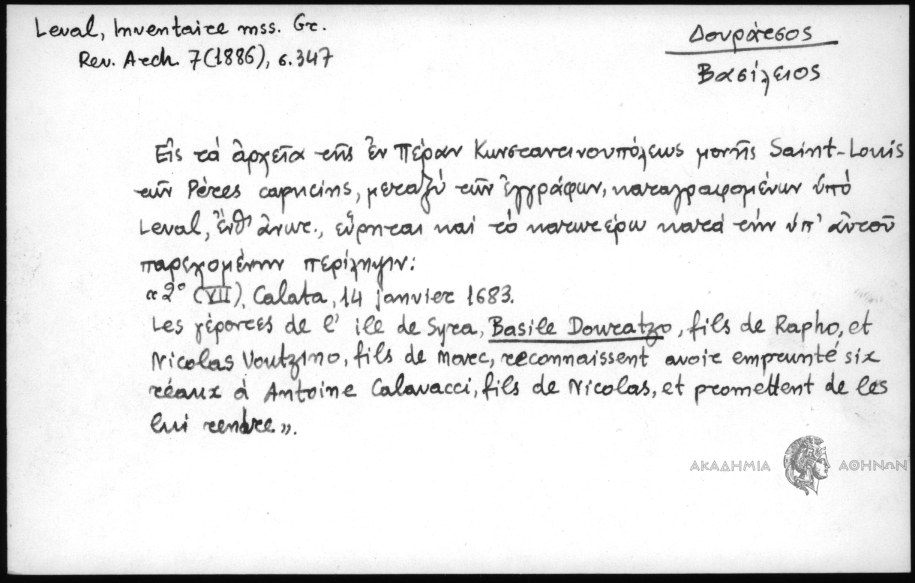 Leval, Inventaire mss. Gr.
Rev. Arch. 7(1886), σ.347
Δουράτσος
Βασίλειος
Εἰς τά ἀρχεῖα τῆς ἐν Πέραν Κωνσταντινουπόλεως μονῆς Saint-Louis
τῶν Pères capucins, μεταξύ τῶν ἐγγράφων, καταγραφομένων ὑπό
Leval, ἔνθ' ἀνωτ., εὕρηται καί τό κατωτέρω κατά τήν ὑπ' αὐτοῦ
παρεχομένην περίληψιν:
« 2° (VII), Galata, 14 janvier 1683.
Les γέροντες de l' ile de Syra, Basile Douratzo, fils de Rapho, et
Nicolas Voutzino, fils de Marc, reconnaissent avoir emprunté six
réaux à Antoine Calavacci, fils de Nicolas, et promettent de les
lui rendre».
ΑΚΑΔΗΜΙΑ ΑΘΗΝΩΝ